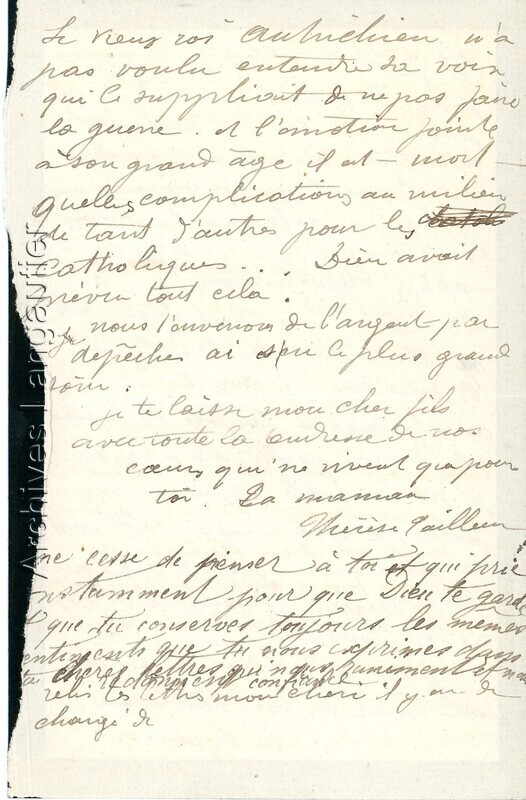 Le vieux roi Autrichien n'a
pas voulu entendre sa voix
qui le suppliait de ne pas faire
la guerre. et l'émotion jointe
à son grand âge il est – mort –
quelles complications au milieu
de tant d'autres pour les
Catholiques... Dieu avait
prévu tout cela.
Je nous t'envenons de l'argent par
dépêches ai s'en le plus grand
soin.
je te laisse mon cher fils
avec toute la tendresse de nos
coeurs qui ne vivent que pour
toi. Ta maman
Thérèse Tailleur
ne cesse de penser à toi et qui prie
nstamment pour que Dieu te garde
t que tu conserves toujours les mêmes
entiments que tu nous exprimes dans
ta chère lettres qui nous raniment et nous
redonnent confiance
relis les lettres mon chéri il y en de
changé de
Archives Langautier